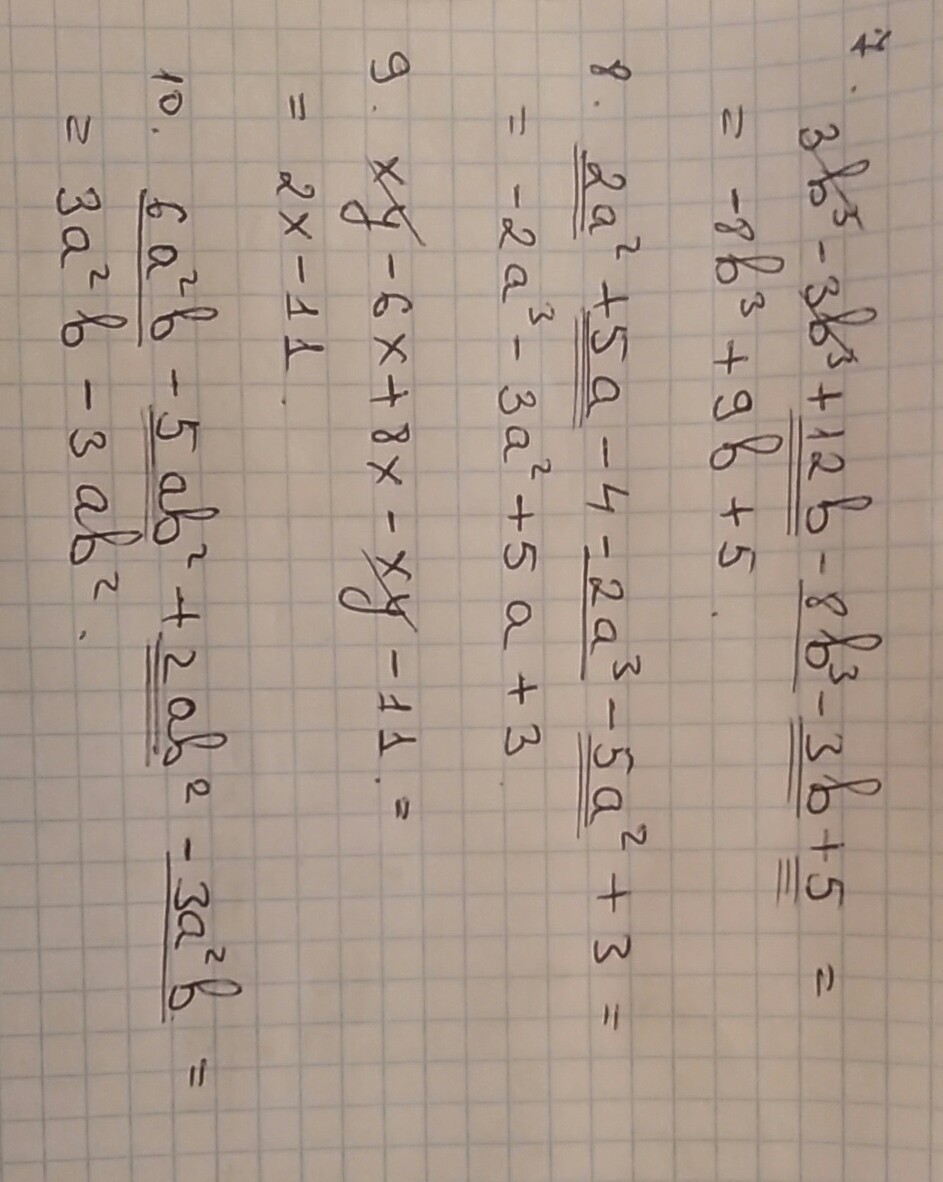 7. 3b³ - 3b³ + 12b - 8b³ - 3b + 5 =
= -8b³ + 9b + 5.
8. 2a² + 5a - 4 - 2a³ - 5a² + 3 =
= -2a³ - 3a² + 5a + 3.
9. xy - 6x + 8x - xy - 11. =
= 2x - 11.
10. 6a²b - 5ab² + 2ab² - 3a²b =
= 3a²b - 3ab².